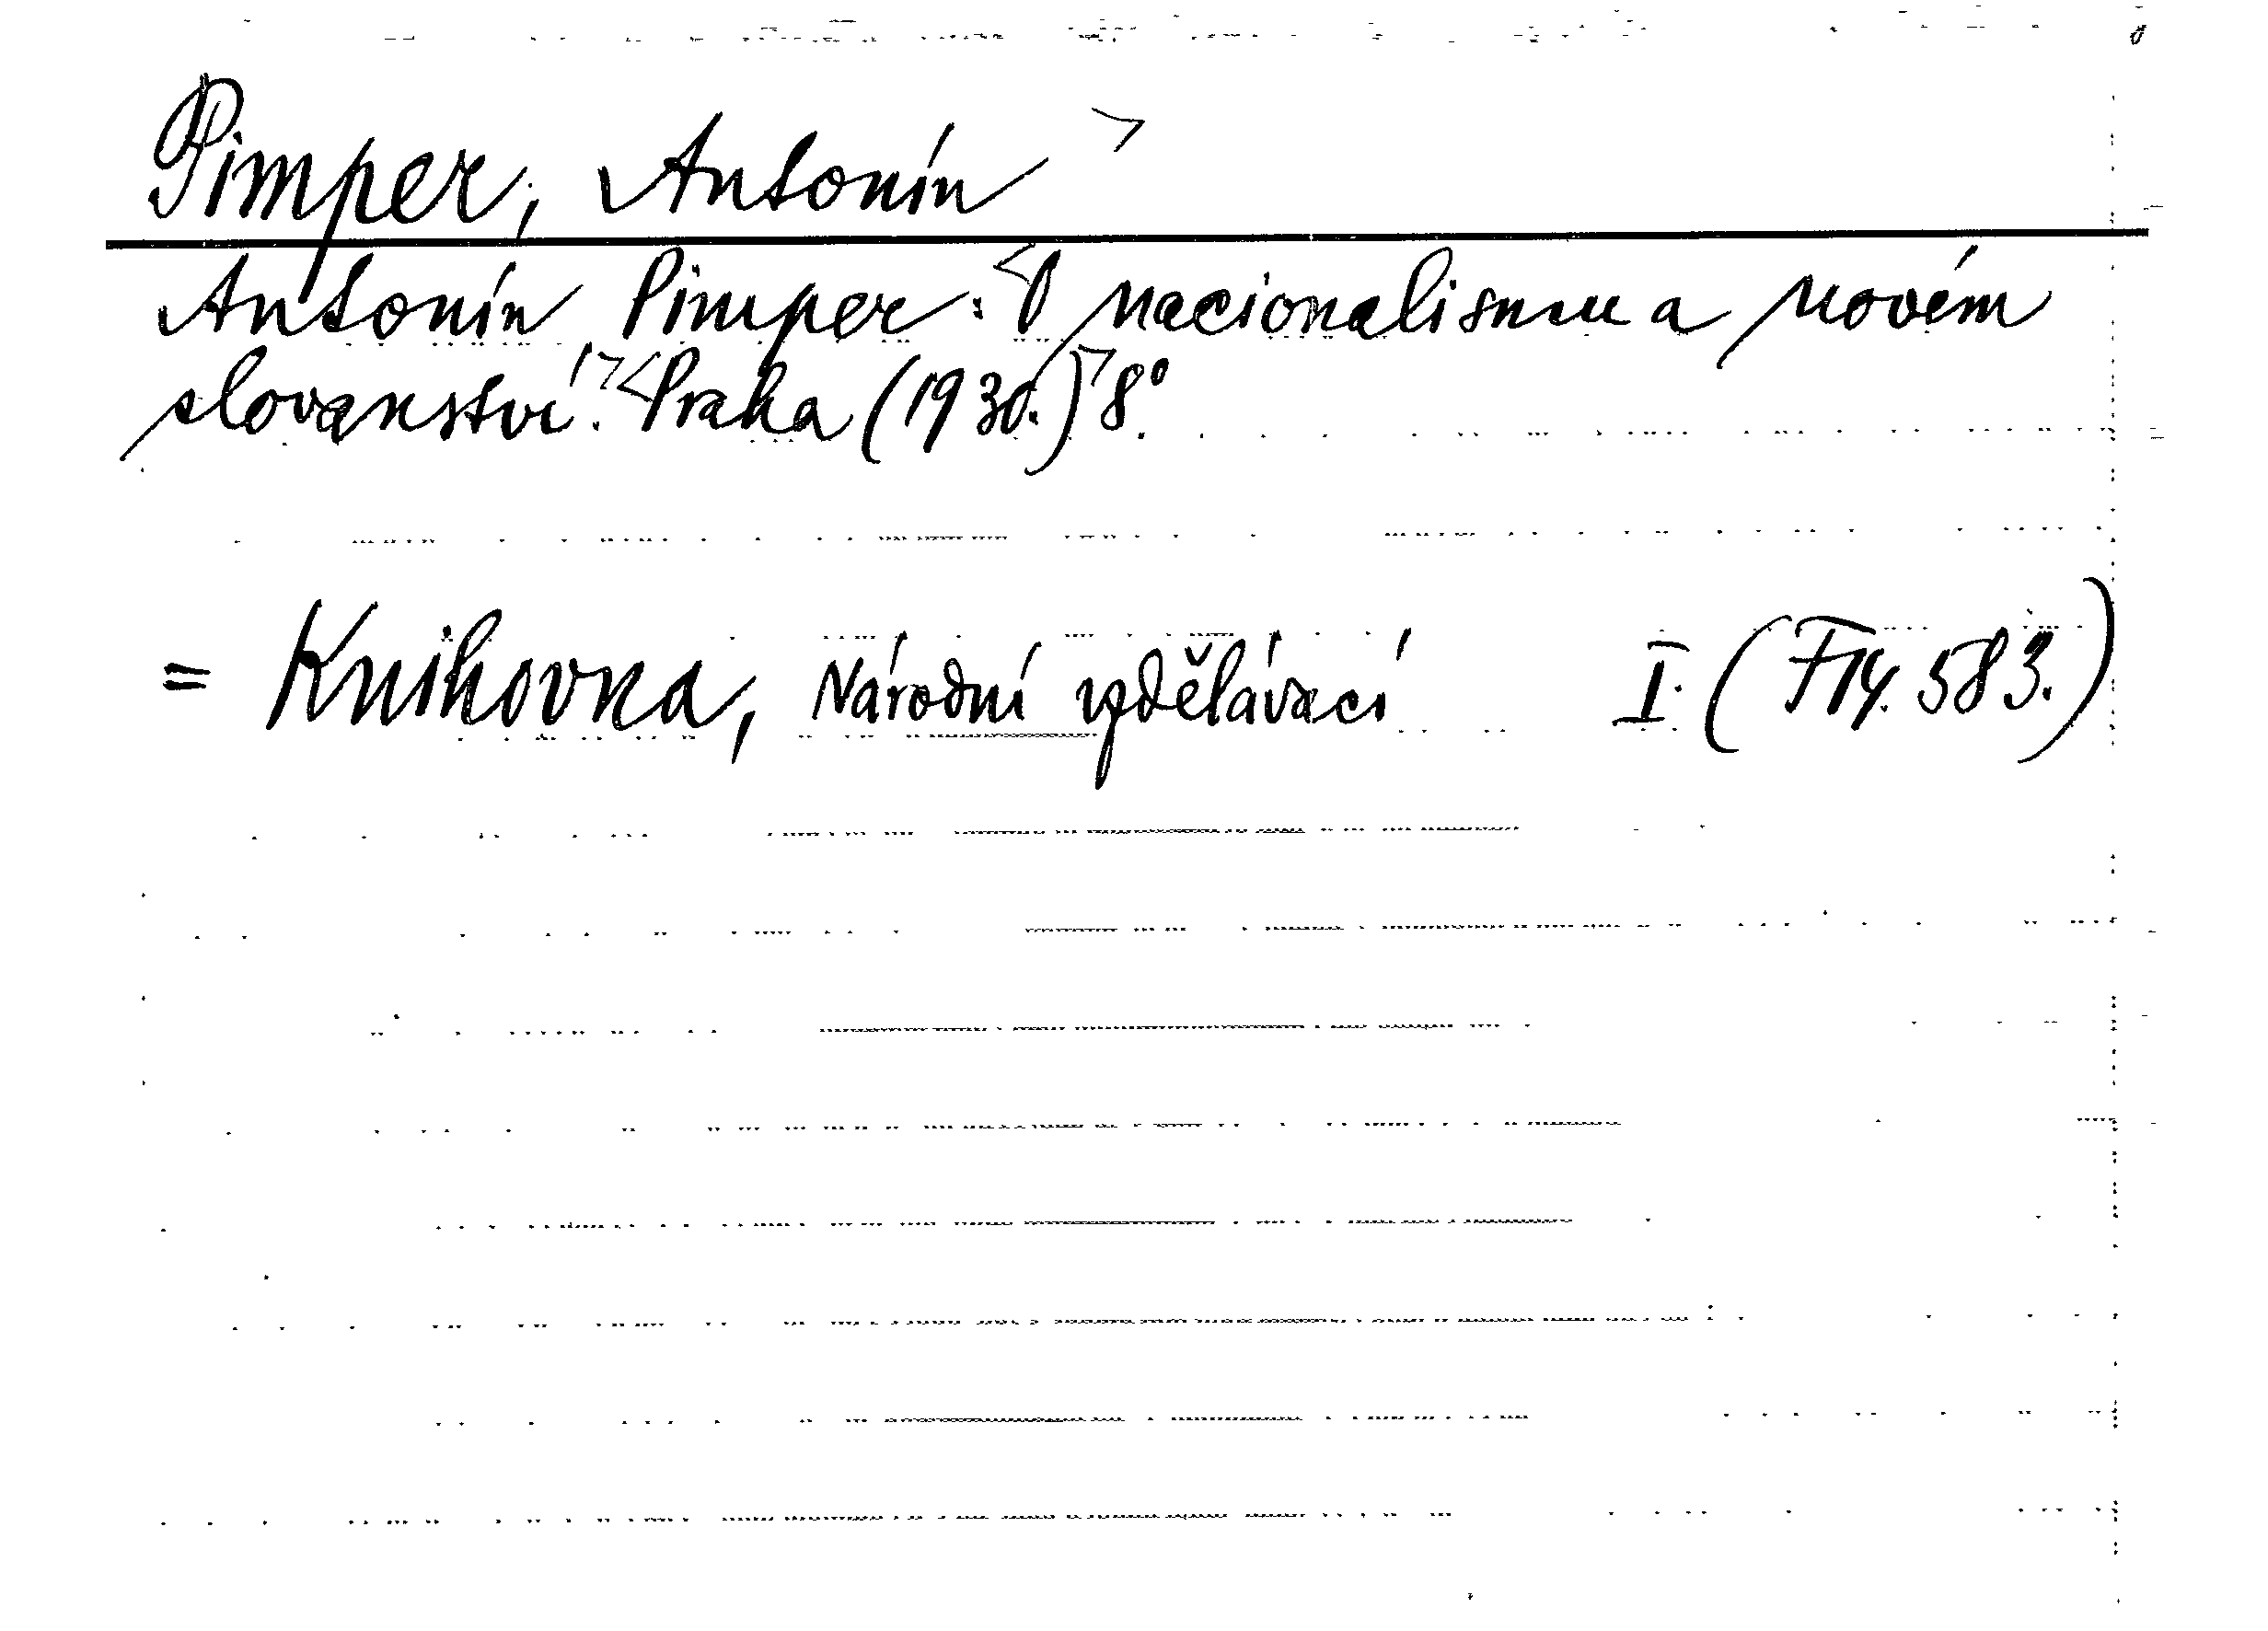 Pimper, Antonín
Antonín Pimper: O nacionalismu a novém
slovanství. Praha (1930.) 8°.
= Knihovna, Národní vzdělávací I. (F14. 583.)